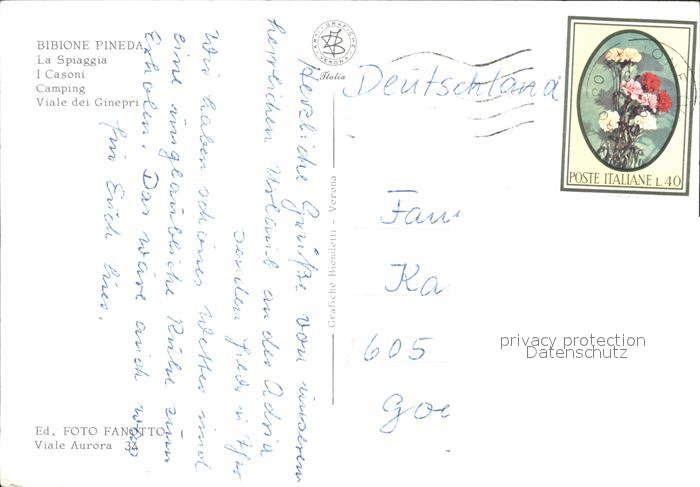 BIBIONE PINEDA
La Spiaggia
I Casoni
Camping
Viale dei Ginepri
Herzliche Grüße von unserem
herrlichen Urlaub an der Adria
senden
Wir haben schönes Wetter und
eine unglaubliche Ruhe zum
Erholen. Das wäre auch was
für Euch hier.
Ed. FOTO FANOTTO
Viale Aurora 34
ARTI GRAFICHE
VERONA
Italia
Grafiche Biondetti - Verona
Deutschland
Fam
Ka
605
Goe
POSTE ITALIANE L.40
privacy protection
Datenschutz